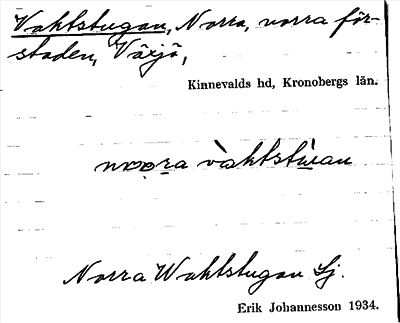 Vaktstugan, Norra, norra för-
staden, Växjö,
Kinnevalds hd, Kronobergs län.
Norra Waktstugan Lj.
Erik Johannesson 1934.